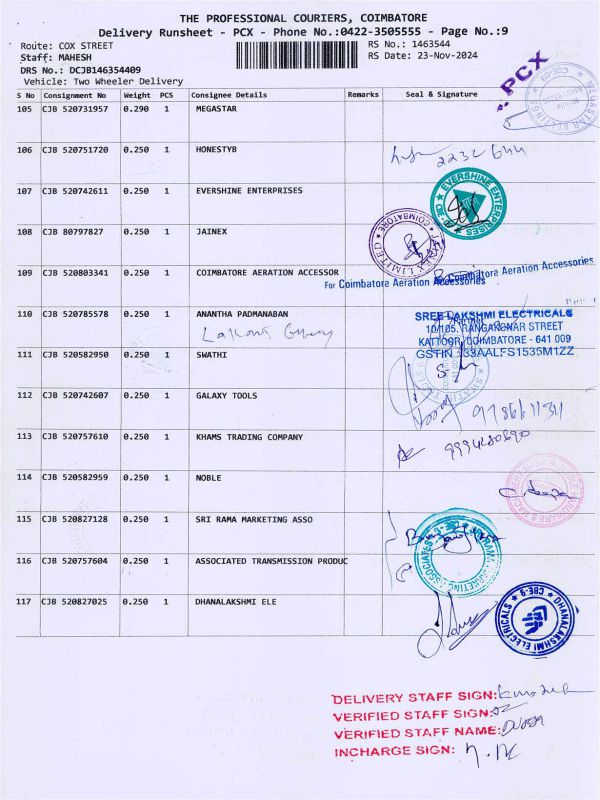 THE PROFESSIONAL COURIERS, COIMBATORE
Delivery Runsheet - PCX - Phone No.:0422-3505555 - Page No.:9
Route: COX STREET
RS No.: 1463544
Staff: MAHESH
RS Date: 23-Nov-2024
DRS No.: DCJB146354409
Vehicle: Two Wheeler Delivery
PCX
S No Consignment No Weight PCS Consignee Details Remarks Seal & Signature
105 CJB 520731957 0.290 1 MEGASTAR
106 CJB 520751720 0.250 1 HONESTYB
2232
107 CJB 520742611 0.250 1 EVERSHINE ENTERPRISES
EVERSHINE ENTERPRISES
108 CJB 80797827 0.250 1 JAINEX
COIMBATORE
LIMITED
109 CJB 520803341 0.250 1 COIMBATORE AERATION ACCESSOR
Coimbatore Aeration Accessories
For Coimbatore Aeration Accessories
110 CJB 520785578 0.250 1 ANANTHA PADMANABAN
SREE LAKSHMI ELECTRICALS
10/105, RANGAKONAR STREET
KATTOOR, COIMBATORE - 641 009
GSTIN : 33AALFS1535M1ZZ
111 CJB 520582950 0.250 1 SWATHI
112 CJB 520742607 0.250 1 GALAXY TOOLS
113 CJB 520757610 0.250 1 KHAMS TRADING COMPANY
114 CJB 520582959 0.250 1 NOBLE
115 CJB 520827128 0.250 1 SRI RAMA MARKETING ASSO
116 CJB 520757604 0.250 1 ASSOCIATED TRANSMISSION PRODUC
117 CJB 520827025 0.250 1 DHANALAKSHMI ELE
DHANALAKSHMI ELECTRICALS
CBE-9
DELIVERY STAFF SIGN:
VERIFIED STAFF SIGN:
VERIFIED STAFF NAME:
INCHARGE SIGN: